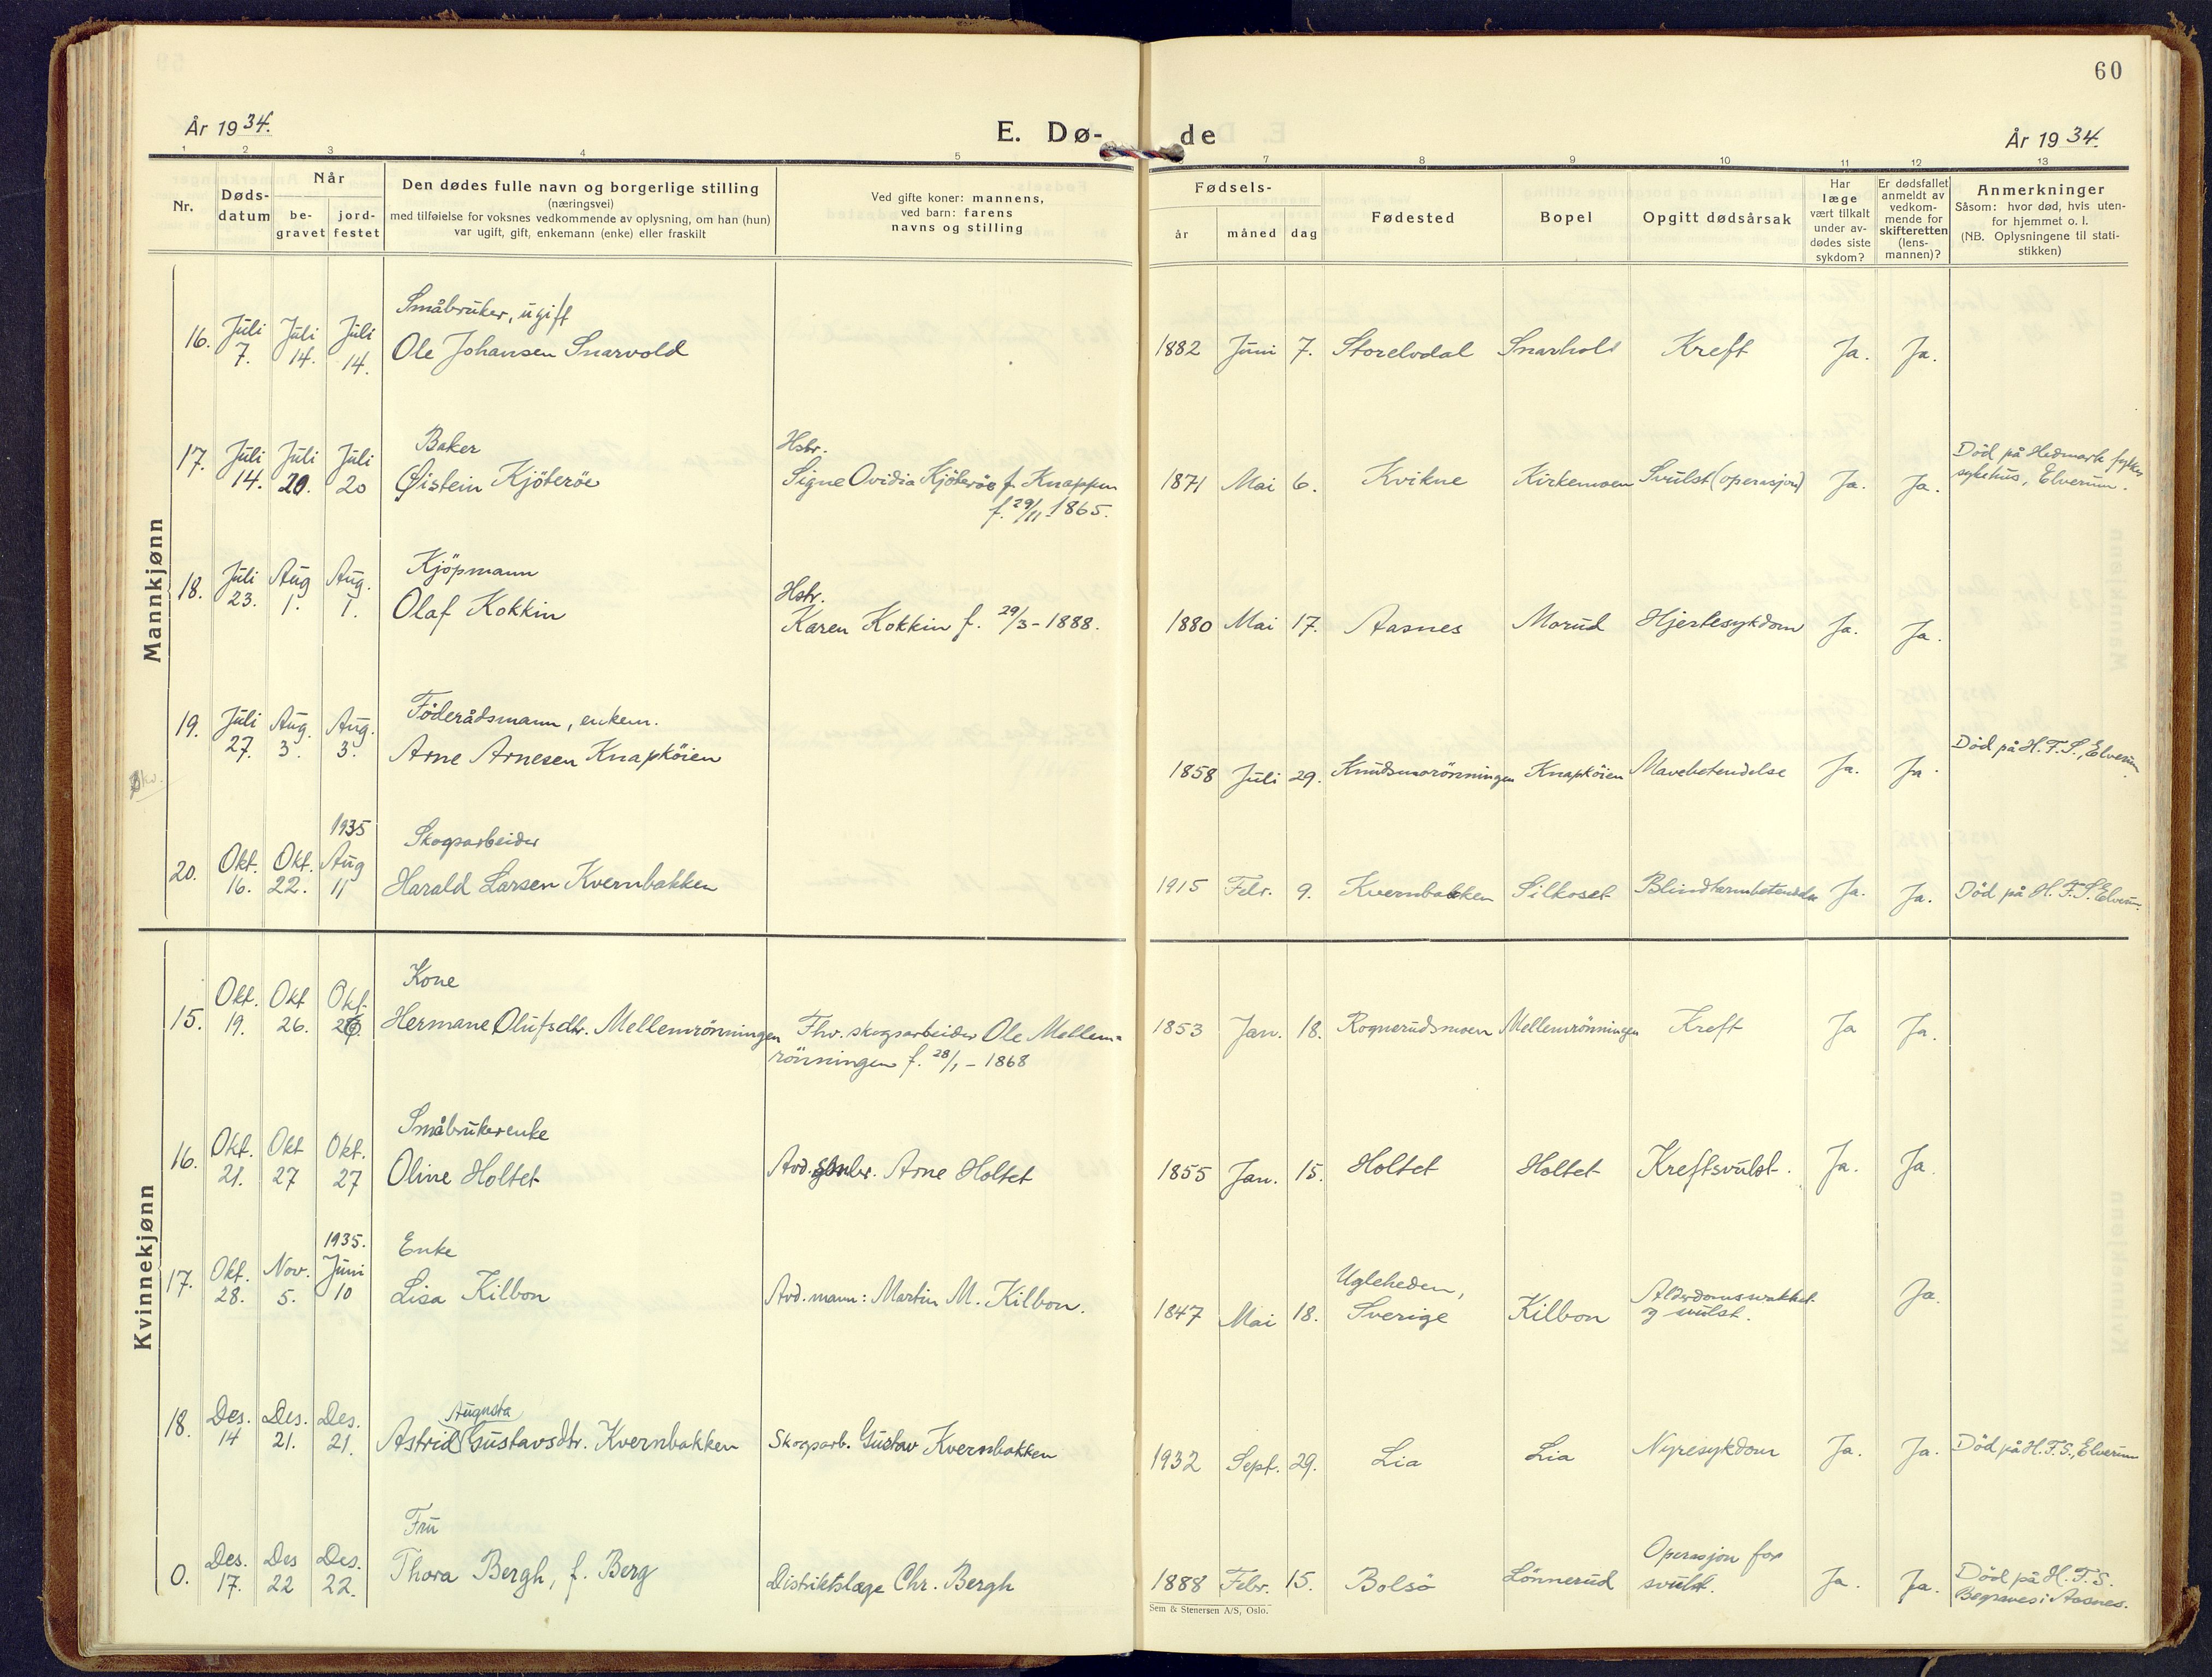 60
År 1934.
E. Dø-
de
År 1934.
1 2 3 4 5 7 8 9 10 11 12 13
Nr.
Døds-
datum
Når
be-
gravet
jord-
festet
Den dødes fulle navn og borgerlige stilling
(næringsvei)
med tilføielse for voksnes vedkommende av oplysning, om han (hun)
var ugift, gift, enkemann (enke) eller fraskilt
Ved gifte koner: mannens,
ved barn: farens
navns og stilling
Fødsels-
år måned dag
Fødested
Bopel
Opgitt dødsårsak
Har
læge
vært tilkalt
under av-
dødes siste
sykdom?
Er dødsfallet
anmeldt av
vedkom-
mende for
skifteretten
(lens-
mannen)?
Anmerkninger
Såsom: hvor død, hvis uten-
for hjemmet o. l.
(NB. Oplysningene til stati-
stikken)
Mannkjønn
Småbruker, ugift
16. Juli 7. Juli 14. Juli 14. Ole Johansen Snarvold 1882 Juni 7. Storelvdal Snarhold Kreft Ja. Ja.
Baker
17. Juli 14. Juli 20. Juli 20 Øistein Kjöteröe
Hstr.
Signe Ovidia Kjöteröe f. Knappen
f. 29/11 1865.
1871 Mai 6. Kvikne Kirkemoen Svulst (operasjon) Ja. Ja.
Död på Hedmark fylkes
sykehus, Elverum.
Kjöpmann
18. Juli 23. Aug 1. Aug. 1. Olaf Kokkin
Hstr.
Karen Kokkin f. 29/3 - 1888.
1880 Mai 17. Aasnes Morud Hjertesykdom Ja. Ja.
Föderådsmann, enkem.
19. Juli 27. Aug. 3. Aug. 3. Arne Arnesen Knapköien
1858 Juli 29. Knudsmorönningen Knapköien Mavebetendelse Ja. Ja.
Död på H.F.S., Elverum
1935
Skogsarbeider
20. Okt. 16. Okt. 22. Aug 11 Harald Larsen Kvernbakken
1915 Febr. 9. Kvernbakken Silkoset Blindtarmbetendelse Ja. Ja. Död på H.F.S. Elverum.
Kvinnekjønn
Kone
15. Okt. 19. Okt 26. Okt 26. Hermane Olufsdtr. Mellemrönningen
Fhv. skogsarbeider Ole Mellem-
rönningen f. 28/1 - 1868
1853 Jan. 18. Rognerudsmoen Mellemrönningen Kreft Ja Ja.
Småbrukerenke
16. Okt. 21. Okt 27 Okt. 27 Oline Holtet
Avd. Arne Holtet
1855 Jan. 15. Holtet Holtet Kreftsvulst. Ja. Ja.
1935.
Enke
17. Okt. 28. Nov. 5. Juni 10 Lisa Kilbon
Avd. mann: Martin M. Kilbon.
1847 Mai 18. Ugleheden,
Sverige Kilbon Alderdomssvakhet
og svulst. Ja.
18. Des. 14 Des. 21. Des. 21. Astrid Augusta Gustavsdtr. Kvernbakken
Skogsarb. Gustav Kvernbakken
1932 Sept. 29. Lia Lia Nyresykdom Ja. Ja. Död på H.F.S., Elverum
Fru
0. Des. 17. Des 22 Des. 22. Thora Bergh, f. Berg
Distriktslæge Chr. Bergh
1888 Febr. 15. Bolsö Lönnerud Operasjon for
svulst. Ja. Ja. Död på H.F.S.
Begraves i Aasnes.
Sem & Stenersen A/S, Oslo.